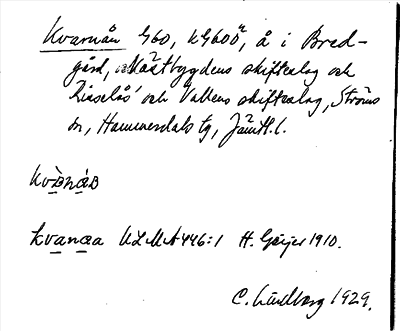 Kvarnån 960, k 9600, å i Bred-
gård, Näktbygdens skifteslag och
Risselås' och Vallens skifteslag, Ströms
sn, Hammerdals tg, Jämtl. l.
kvanåa ULMA 446:1 H. Geijer 1910.
C. Lindberg 1929.